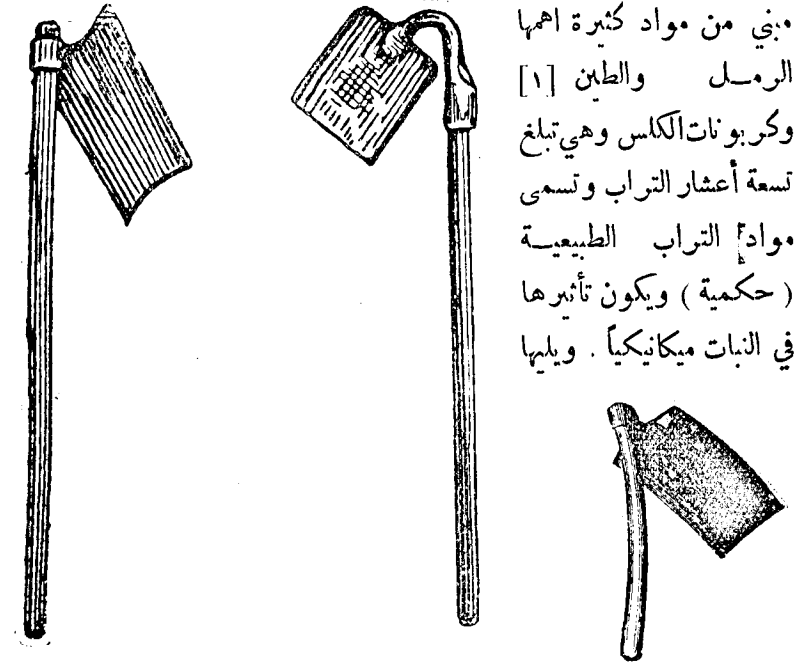 مبني من مواد كثيرة اهمها
الرمل والطين [١]
وكربونات الكلس وهي تبلغ
تسعة أعشار التراب وتسمى
مواد التراب الطبيعية
( حكمية ) ويكون تأثيرها
في النبات ميكانيكياً . ويليها